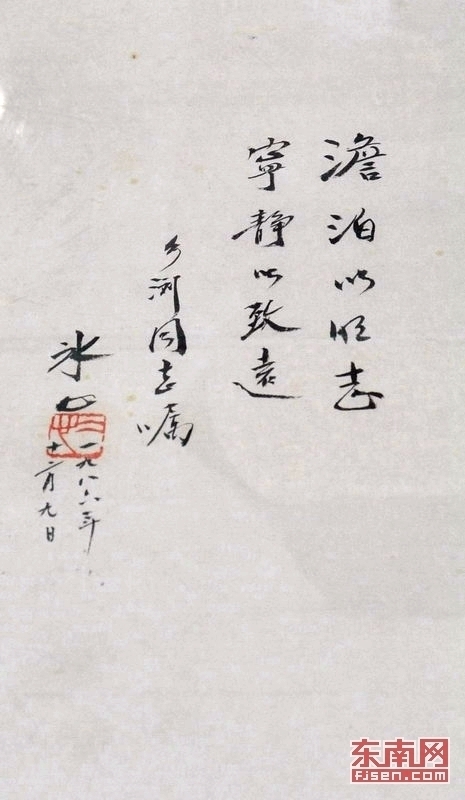 澹泊以明志
寧静以致遠
河同志嘱
冰心
一九八六年
十二月九日
东南网
FJSEN.COM